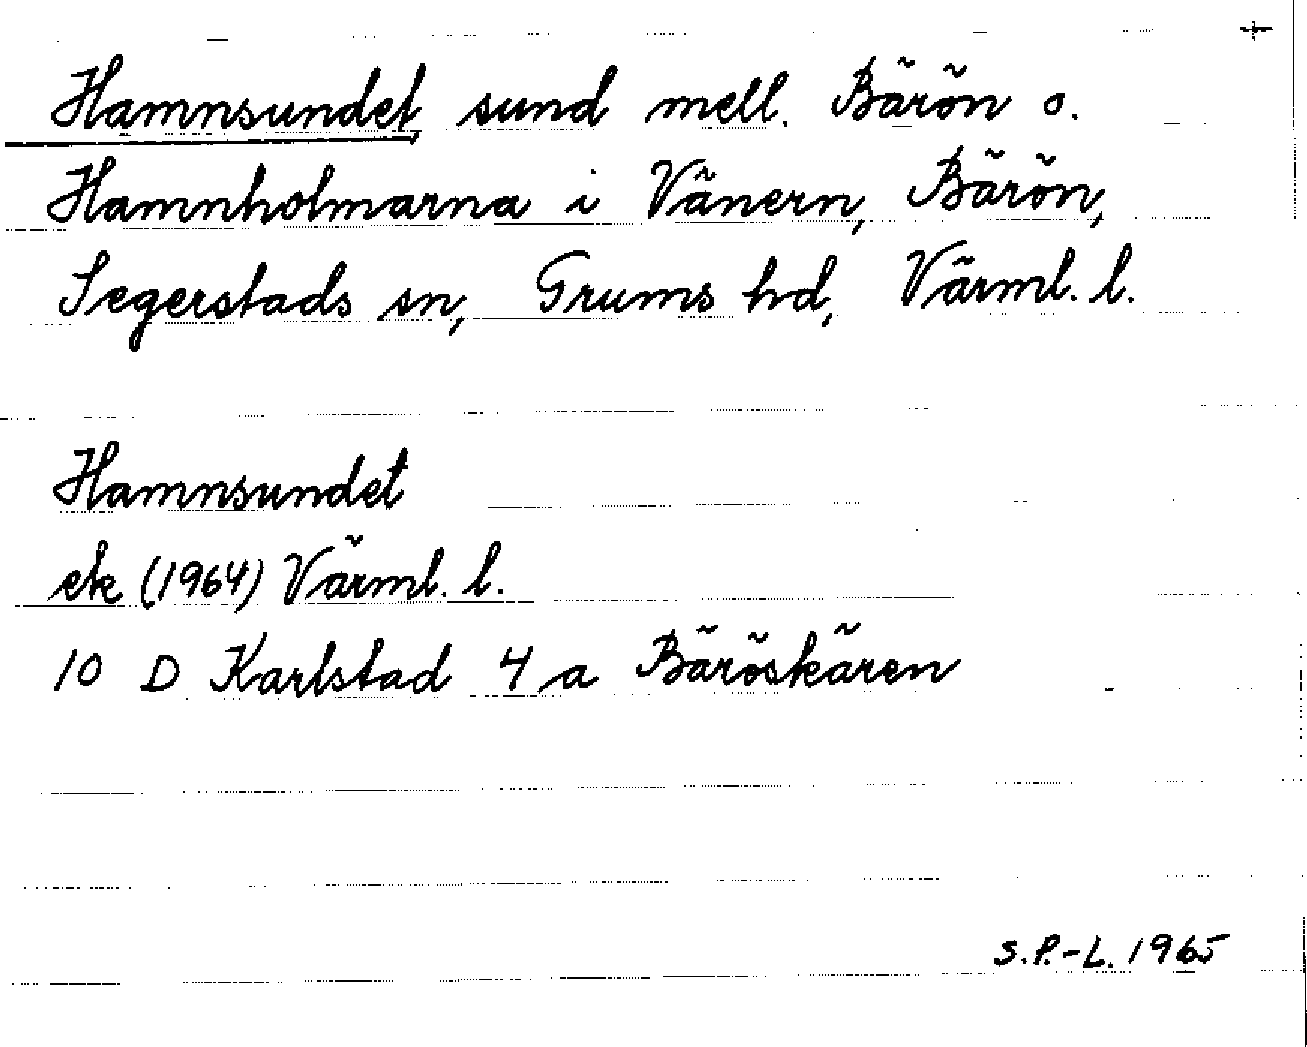 Hamnsundet, sund mell. Bärön o.
Hamnholmarna i Vänern, Bärön,
Segerstads sn, Grums hd, Värml. l.
Hamnsundet
ek (1964) Värml. l.
10 D Karlstad 4 a Bäröskären
S.P.-L. 1965